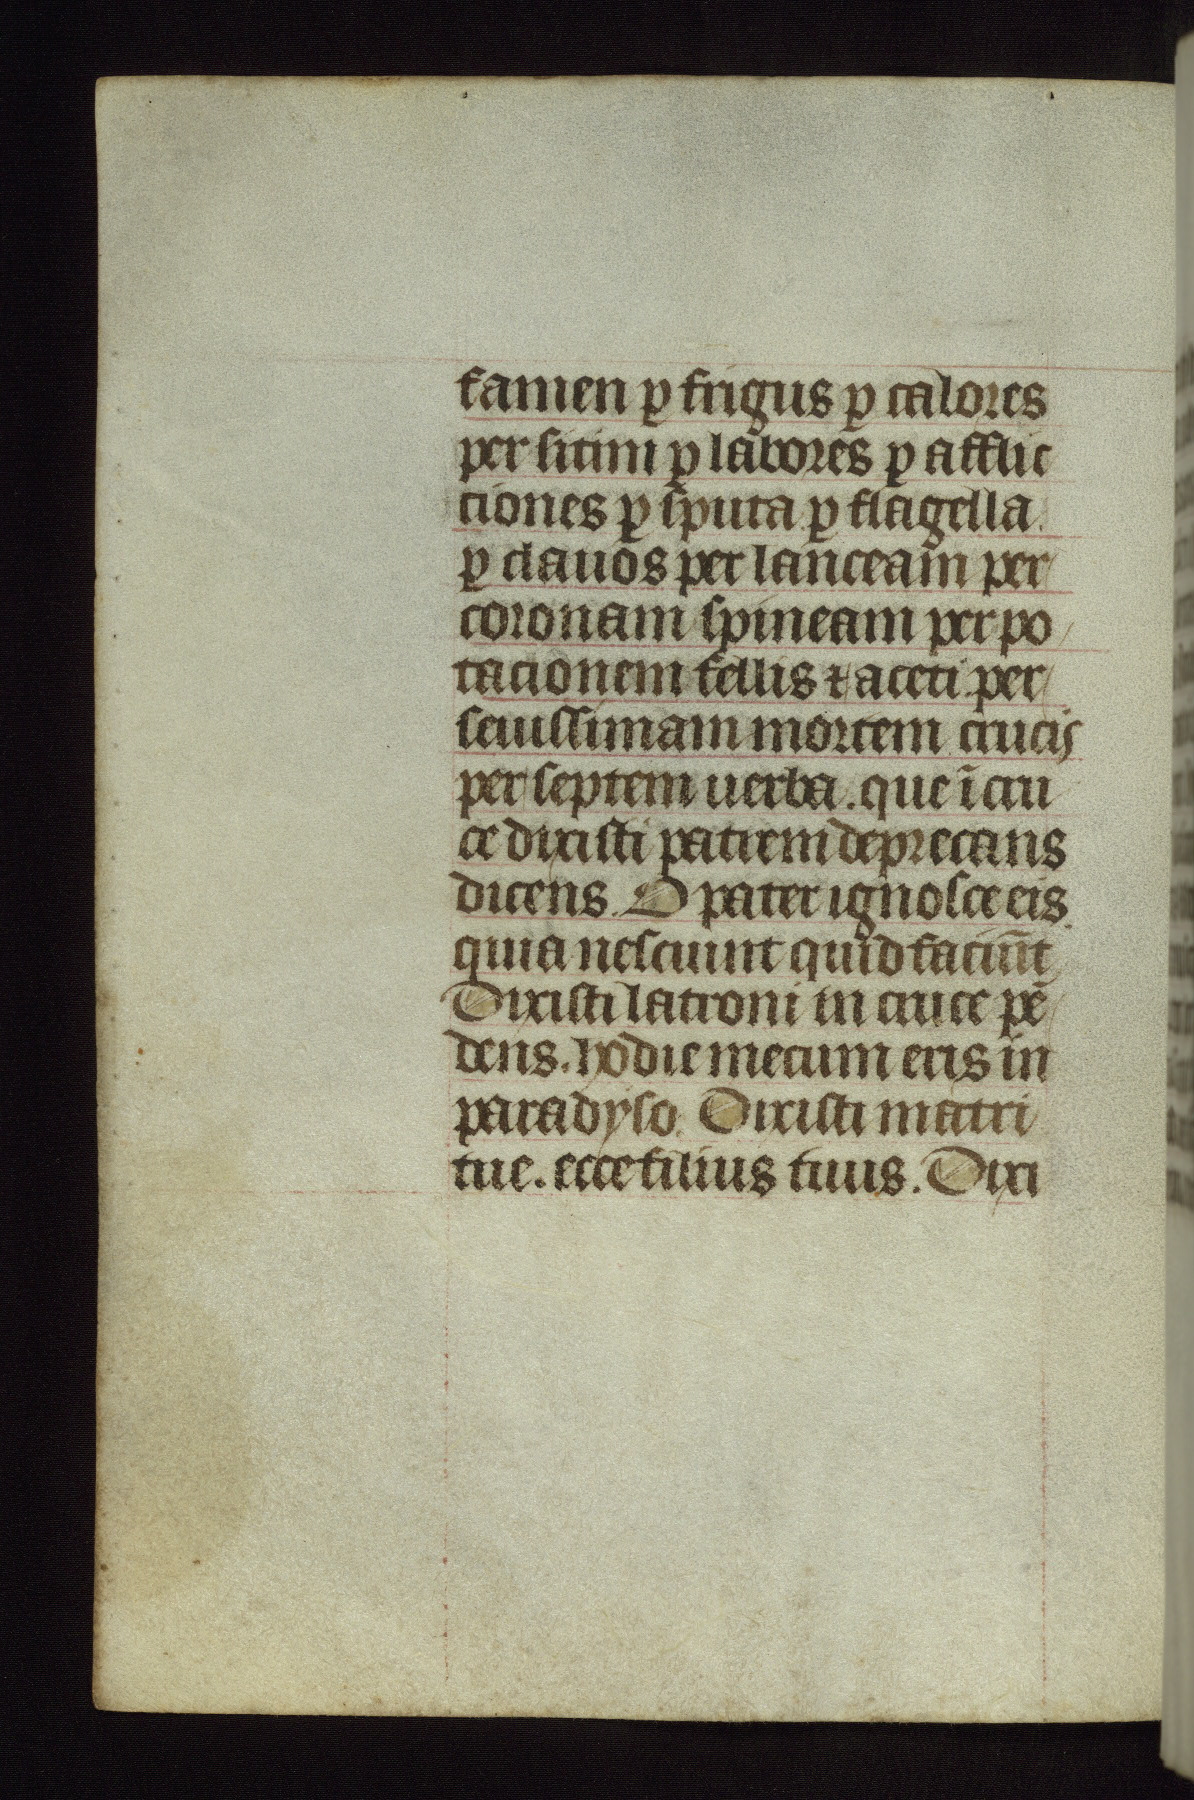 famen ꝑ frigus ꝑ calores
per sitim ꝑ labores ꝑ afflic
ciones ꝑ sputa ꝑ flagella.
ꝑ clauos per lanceam per
coronam spineam per po
tacionem fellis ⁊ aceti. per
seuissimam mortem crucis
per septem uerba. que ī cru
ce dixisti patrem deprecans
dicens. O pater ignosce eis.
quia nesciunt quid faciūt
Dixisti latroni in cruce pē
dens. hodie mecum eris in
paradyso. Dixisti matri
tue. ecce filius tuus. Dixi